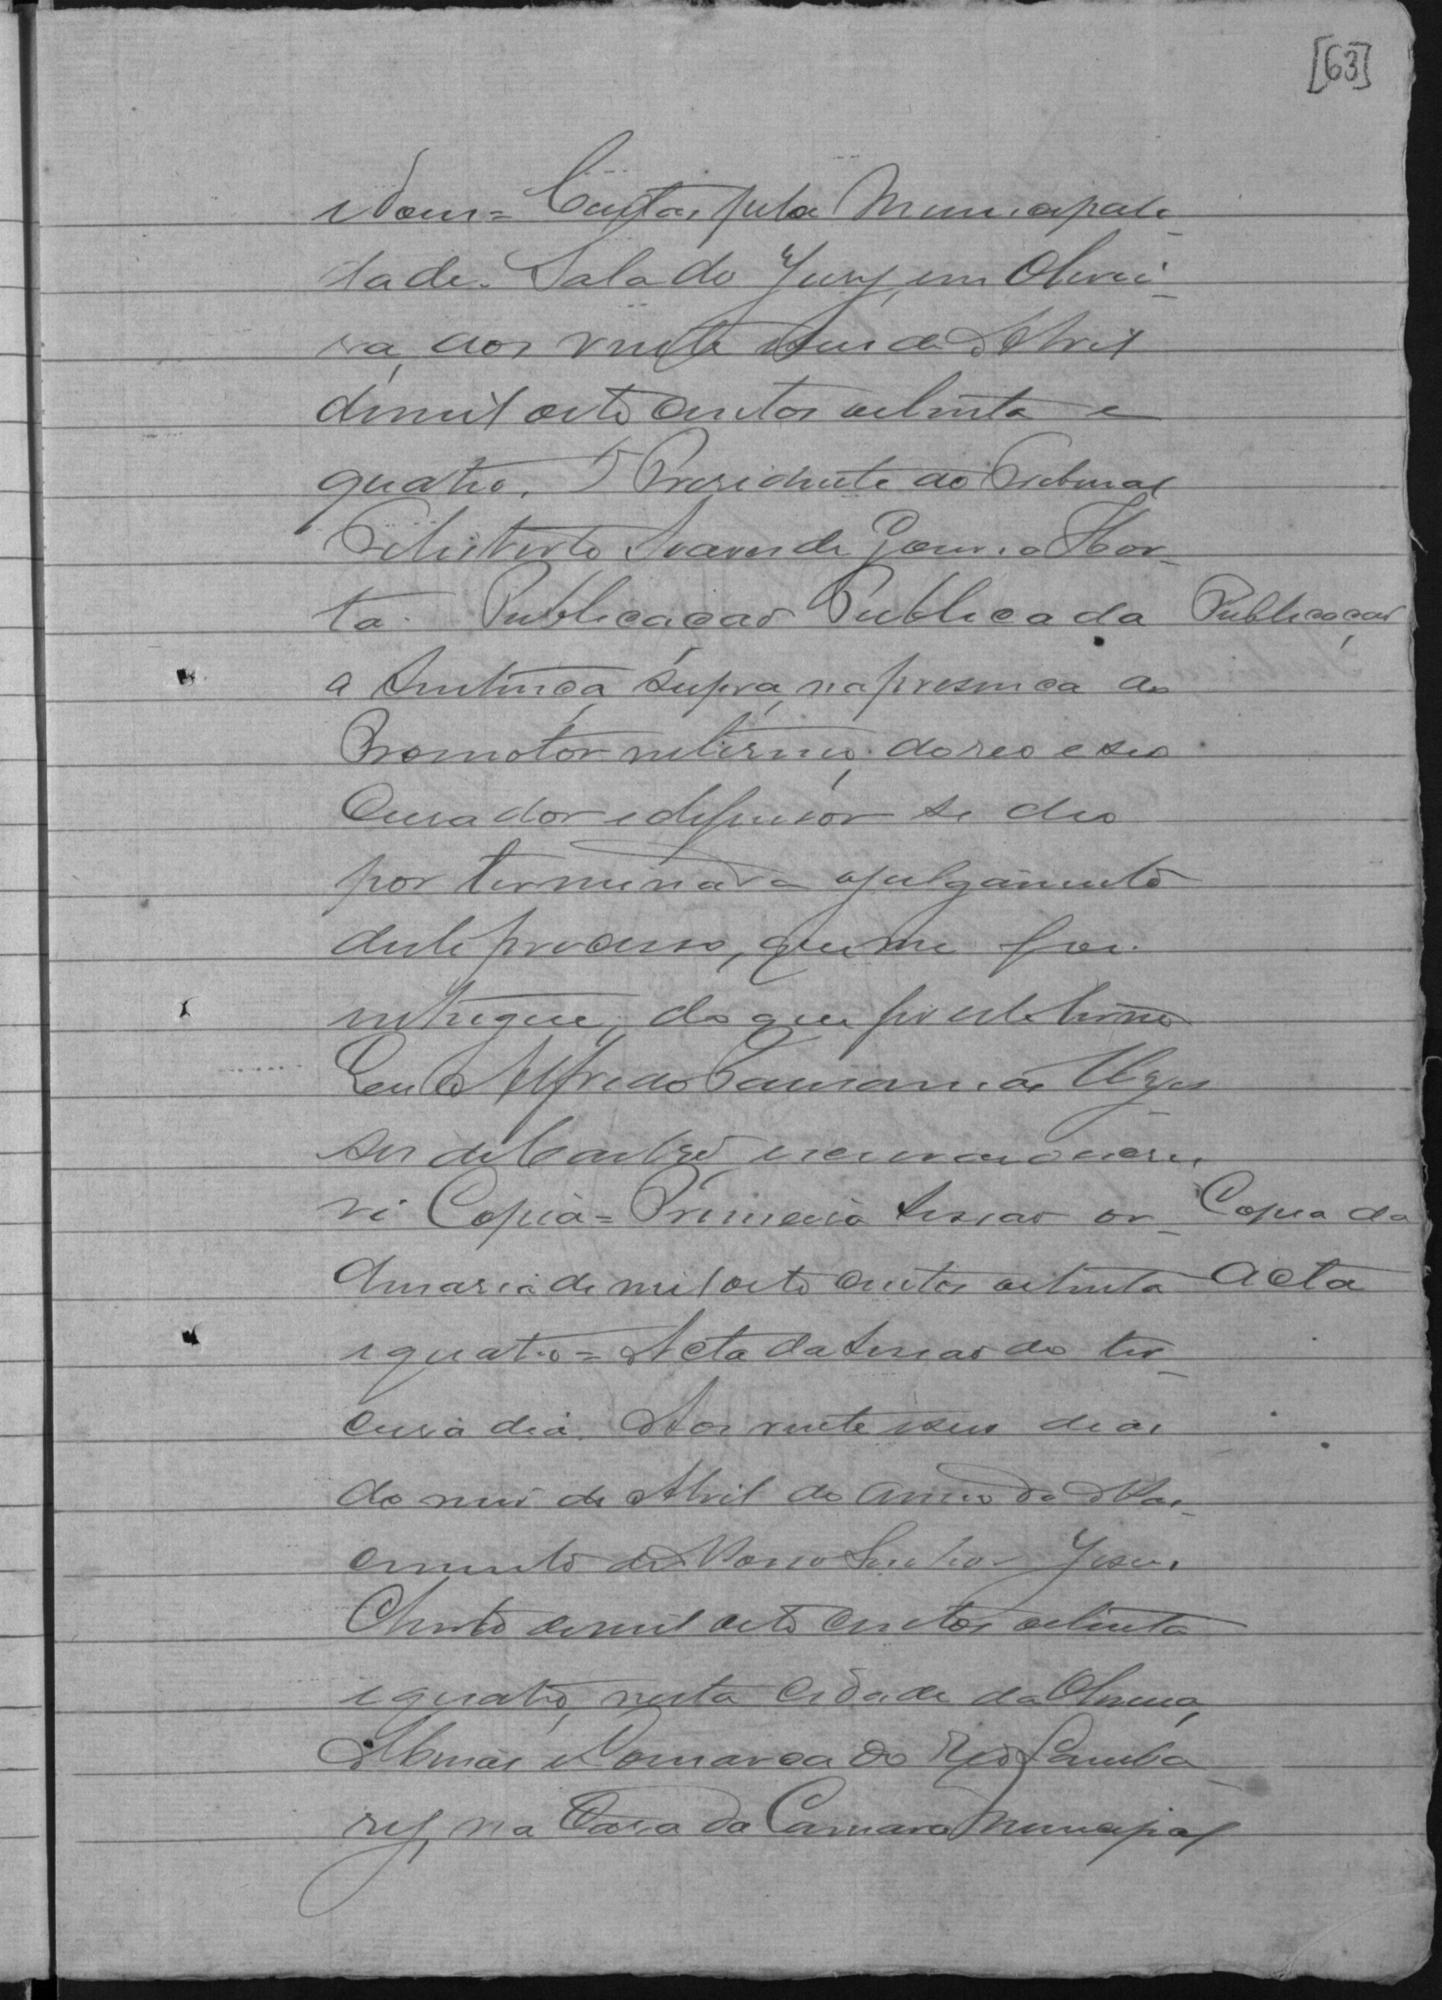 [63]
Custas pela Municipali-
dade. Sala do Jury, em Olivei-
ra, aos vinte e seis de Abril
de mil oito centos oitenta e
quatro. O Presidente do Tribunal
Soares de Gouvea Hor-
ta. Publicação Publicada
Publicação
a Sentença supra, na presença do
Promotor interino, do reo e seo
Curador e defensor se deo
por terminado o julgamento
deste processo, que me foi
entregue, do que fiz este termo
Eu Alfredo Pausanias
de Castro escrivão o escre
vi Copia = Primeira Sessão or-
Copia da
dinaria de mil oito centos oitenta
Acta
e quatro = Acta da Sessão do ter-
ceiro dia. Aos vinte e seis dias
do mez de Abril do anno do Nas-
cimento de Nosso Senhor Jesus
Christo de mil oito centos oitenta
e quatro, nesta cidade da Oliveira,
Minas e Comarca do Rio Lamba-
ry, na Casa da Camara Municipal